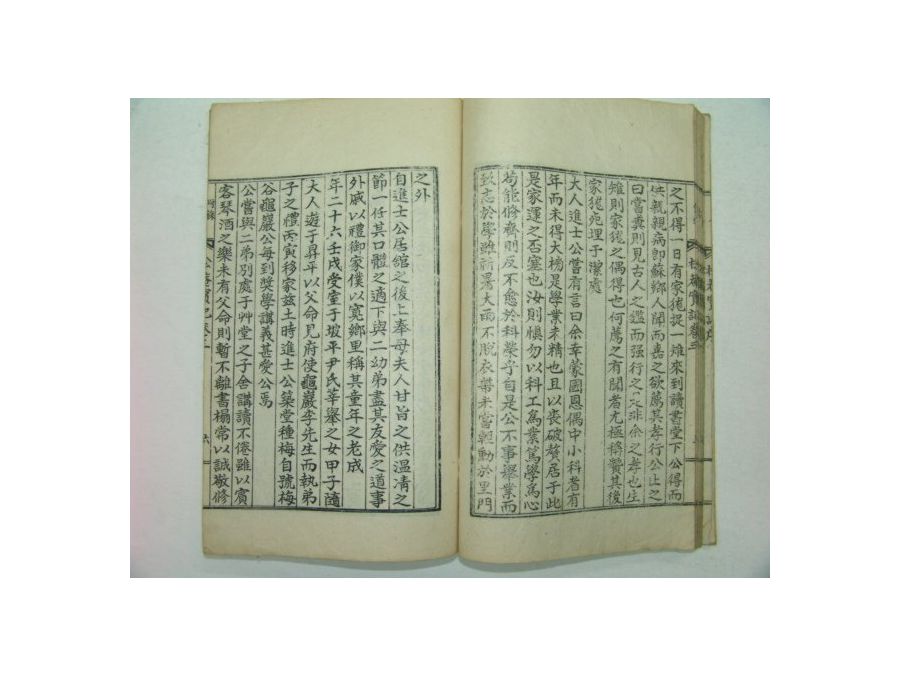 之不得一日有家㹨捉一雉來到讀書堂下公得而
供親親病卽蘇鄕人聞而嘉之欲薦其孝行公止之
曰嘗糞則見古人之遺而强行之 非余之孝也生
雉則家㹨之偶得也何薦之有聞者尤極稱贊其後
家㹨死埋于潔處
大人進士公嘗有言曰余幸蒙國恩偶中小科者有
年而未得大榜是學業未精也且以喪破聱居于此
是家運之否塞也汝則愼勿以科工爲業篤學爲心
苟能修齊則反不愈於科榮乎自是公不事擧業而
致志於 雖祈寒暑大雨不脫衣帶未嘗輕動於里門
之外
自進士公居館之後上奉母夫人甘旨之供溫凊之
節一任其口體之適下與二幼弟盡其友愛之道事
外戚以禮御家僕以寬鄕里稱其童年之老成
年二十六壬戌受室于坡平尹氏莘擧之女甲子隨
大人遊于昇平以父命見府使龜巖李先生而執弟
子之禮丙寅移家玆土時進士公築堂種梅自號梅
谷龜巖公每到奬學講義甚愛公焉
公嘗與二弟別處于艸堂之子舍講讀不倦雖以賓
客琴酒之樂未有父命則暫不離書榻常以誠敬修
附錄
實記卷之二
六